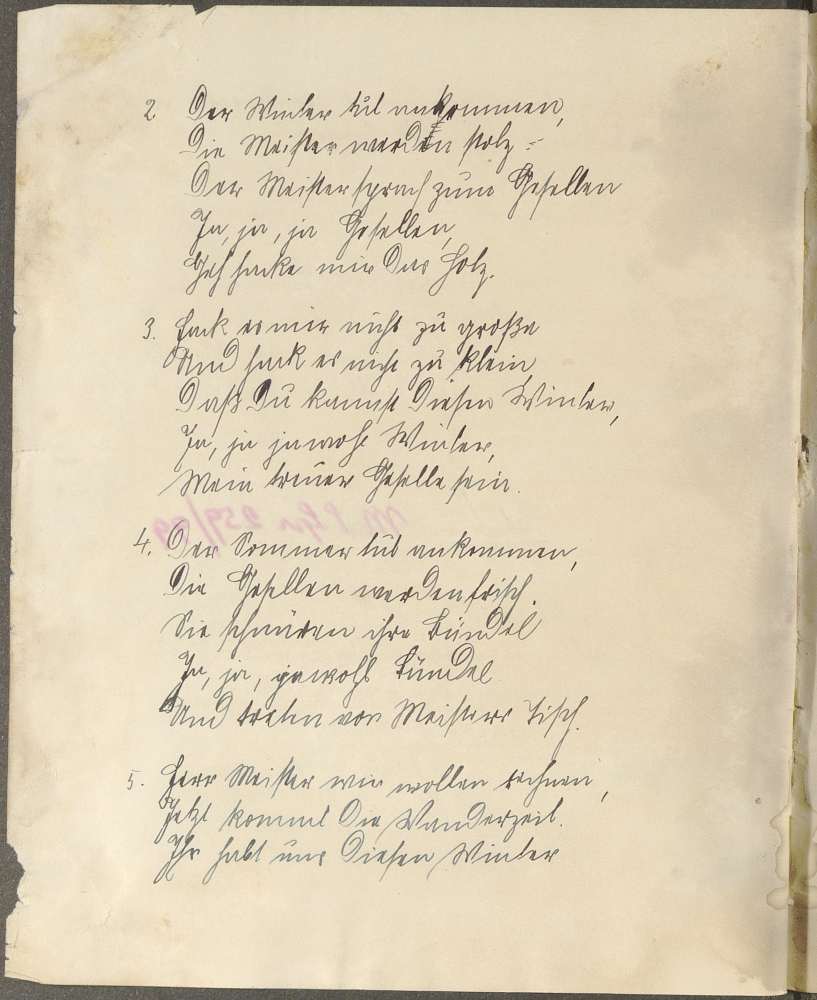 2 Der Winter tut ankommen,
Die Meister werden stolz -
Der Meister sprach zum Gesellen
Ja, ja, ja Gesellen,
Geh hacke mir das Holz.
3. Hack es mir nicht zu große
Und hack es nicht zu klein,
Daß Du kannst diesen Winter,
Ja, ja jawohl Winter,
Mein treuer Geselle sein.
4. Der Sommer tut ankommen,
Die Gesellen werden frisch.
Sie schnüren ihre Bündel
Ja, ja, jawohl Bündel
Und treten vor Meisters Tisch.
5. Herr Meister wir wollen rechnen,
Jetzt kommt die Wanderzeit.
Ihr habt uns diesen Winter